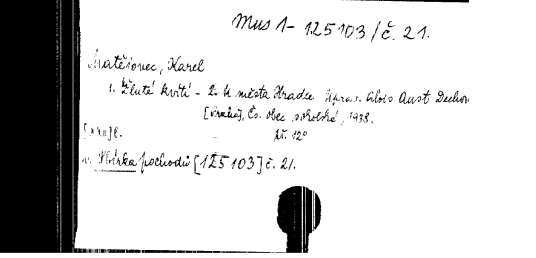 Mus 1-125103/č. 21.
Matějovec, Karel
1. Žluté kvítí - 2. U města Hradce. Uprav. Alois Aust. Dechov
[Praha], Čs. obec sokolská, 1938.
př. 12°
v. Sbírka pochodů [125103] č. 21.